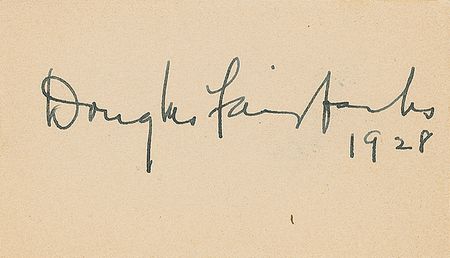 Douglas Fairbanks
1928